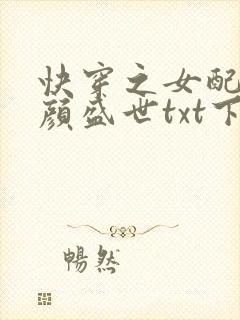 快穿之女配
颜盛世txt下
暢然